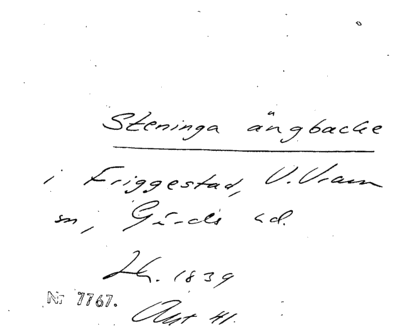 Steninga ängbacke
i Friggestad, V. Vram
sn, Gärds hd.
Lh. 1839
Nr 7767.
Akt 41.